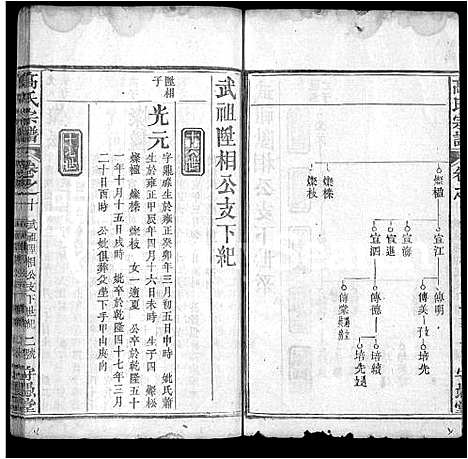 高氏宗譜
卷之
燦櫃
燦樑
燦枝
宣江
宣海
宣進
宣泗
傳明
傳美
傳德
傳榮
子
培先
培先
培先
武祖陞相公支下紀
陞相
子
光元
字鼎
生於雍正癸卯年三月初五日申時
妣氏蕭
生於雍正甲辰年四月十六日未時
生子四
燦松
燦櫃
燦樑
燦枝
女一適夏
公卒於乾隆五十
一年十月十五日戌時
妣卒於乾隆四十七年三月
二十日酉時
公妣俱葬
下手甲山庚向
高氏宗譜
卷之十
武祖陞相公支下世紀
二號
守愚堂